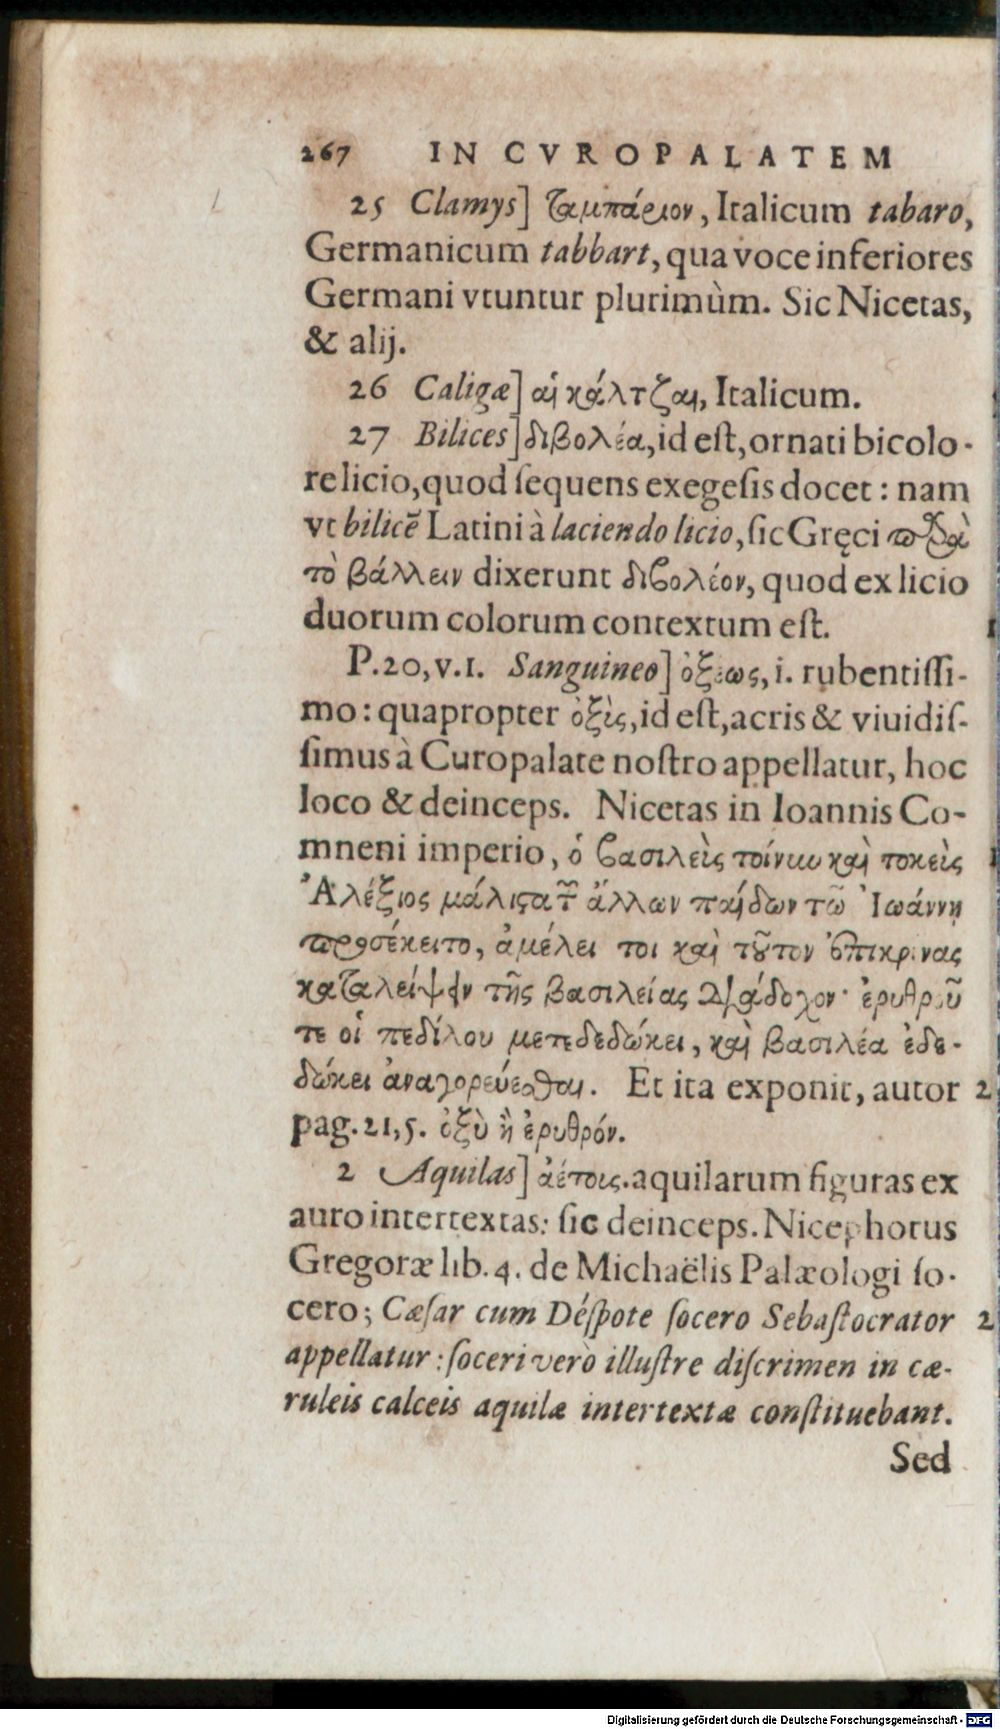 267 IN CVROPALATEM
25 Clamys] ταμπάριον, Italicum tabaro,
Germanicum tabbart, qua voce inferiores
Germani vtuntur plurimùm. Sic Nicetas,
& alij.
26 Caligæ] αἱ κάλτζαι, Italicum.
27 Bilices] διβολέα, id eſt, ornati bicolo-
re licio, quod ſequens exegeſis docet: nam
vt bilicē Latini à laciendo licio, ſic Gręci παρὰ
τὸ βάλλειν dixerunt διβολέον, quod ex licio
duorum colorum contextum eſt.
P. 20, v. 1. Sanguineo] ὀξέως, i. rubentiſſi-
mo: quapropter ὀξὶς, id eſt, acris & viuidiſ-
ſimus à Curopalate noſtro appellatur, hoc
loco & deinceps. Nicetas in Ioannis Co-
mneni imperio, ὁ βασιλεὶς τοίνυν καὶ τοκεὶς
Ἀλέξιος μάλιςα τῶν ἄλλων παίδων τῶ Ἰωάννῃ
προσέκειτο, ἀμέλει τοι καὶ τοῦτον ἐπικρίνας
καταλείψειν τῆς βασιλείας διάδοχον· ἐρυθροῦ
τε οἱ πεδίλου μετεδεδώκει, καὶ βασιλέα ἐδε-
δώκει ἀναγορεύεσθαι. Et ita exponit, autor
pag. 21, 5. ὀξὺ ἢ ἐρυθρόν.
2 Aquilas] ἀέτοις. aquilarum figuras ex
auro intertextas: ſic deinceps. Nicephorus
Gregoræ lib. 4. de Michaëlis Palæologi ſo-
cero; Cæſar cum Déſpote ſocero Sebaſtocrator
appellatur: ſoceri verò illuſtre diſcrimen in cæ-
ruleis calceis aquilæ intertextæ conſtituebant.
Sed
Digitalisierung gefördert durch die Deutsche Forschungsgemeinschaft - DFG